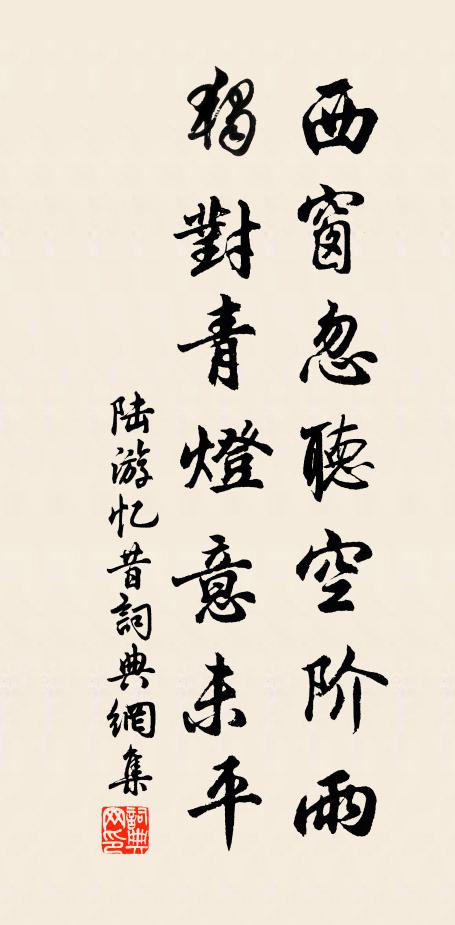 西窗忽聽空阶雨
獨對青燈意未平
陆游忆昔詞典網集
詞典网印